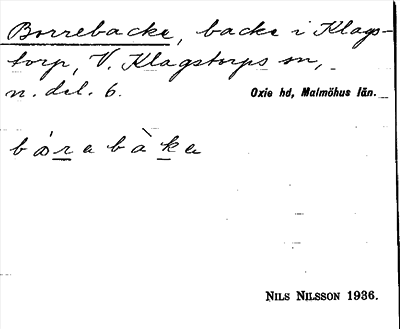 Borrebacke, backe i Klags-
torp, V. Klagstorps sn,
n. del. 6.
Oxie hd, Malmöhus län.
bórabàka
NILS NILSSON 1936.